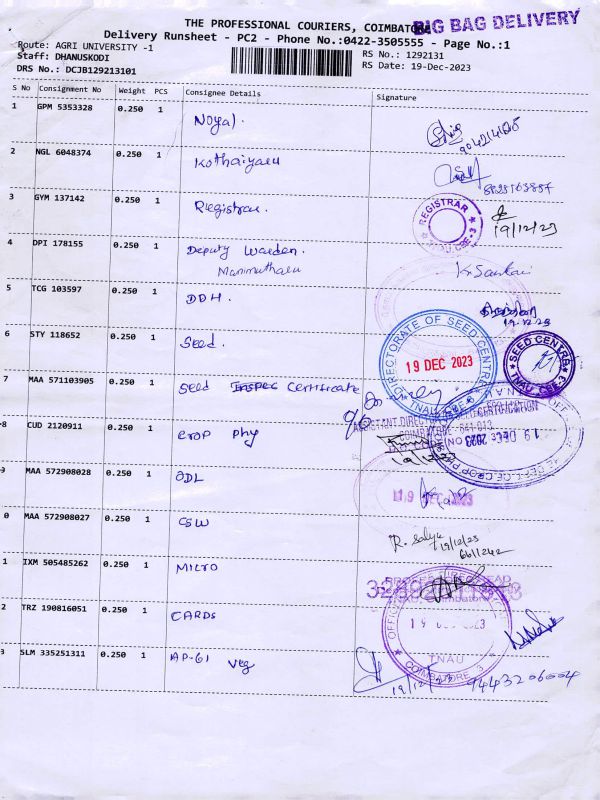 THE PROFESSIONAL COURIERS, COIMBATORE
BIG BAG DELIVERY
Delivery Runsheet - PC2 - Phone No.:0422-3505555 - Page No.:1
Route: AGRI UNIVERSITY -1
RS No.: 1292131
Staff: DHANUSKODI
RS Date: 19-Dec-2023
DRS No.: DCJB129213101
S No Consignment No Weight PCS Consignee Details Signature
1 GPM 5353328 0.250 1 Noyal.
2 NGL 6048374 0.250 1 Kothaiyaru
3 GYM 137142 0.250 1 Registrar.
REGISTRAR
TNAU, CBE-3
19/12/23
4 DPI 178155 0.250 1 Deputy Warden.
Manimutharu
5 TCG 103597 0.250 1 DDH.
19.12.23
6 STY 118652 0.250 1 Seed.
DIRECTORATE OF SEED CENTRE
19 DEC 2023
TNAU, CBE-3
SEED CENTRE
TNAU, CBE-3
7 MAA 571103905 0.250 1 Seed Inspec Certificate
8 CUD 2120911 0.250 1 Crop Phy
19 DEC 2023
19/12/23
9 MAA 572908028 0.250 1 ODL
19 DEC 2023
0 MAA 572908027 0.250 1 CSW
R.
19/12/23
1 IXM 505485262 0.250 1 MICRO
2 TRZ 190816051 0.250 1 CARDS
19 DEC 2023
TNAU
COIMBATORE 3
3 SLM 335251311 0.250 1 AP-61 Veg
19/12/23 9443206004